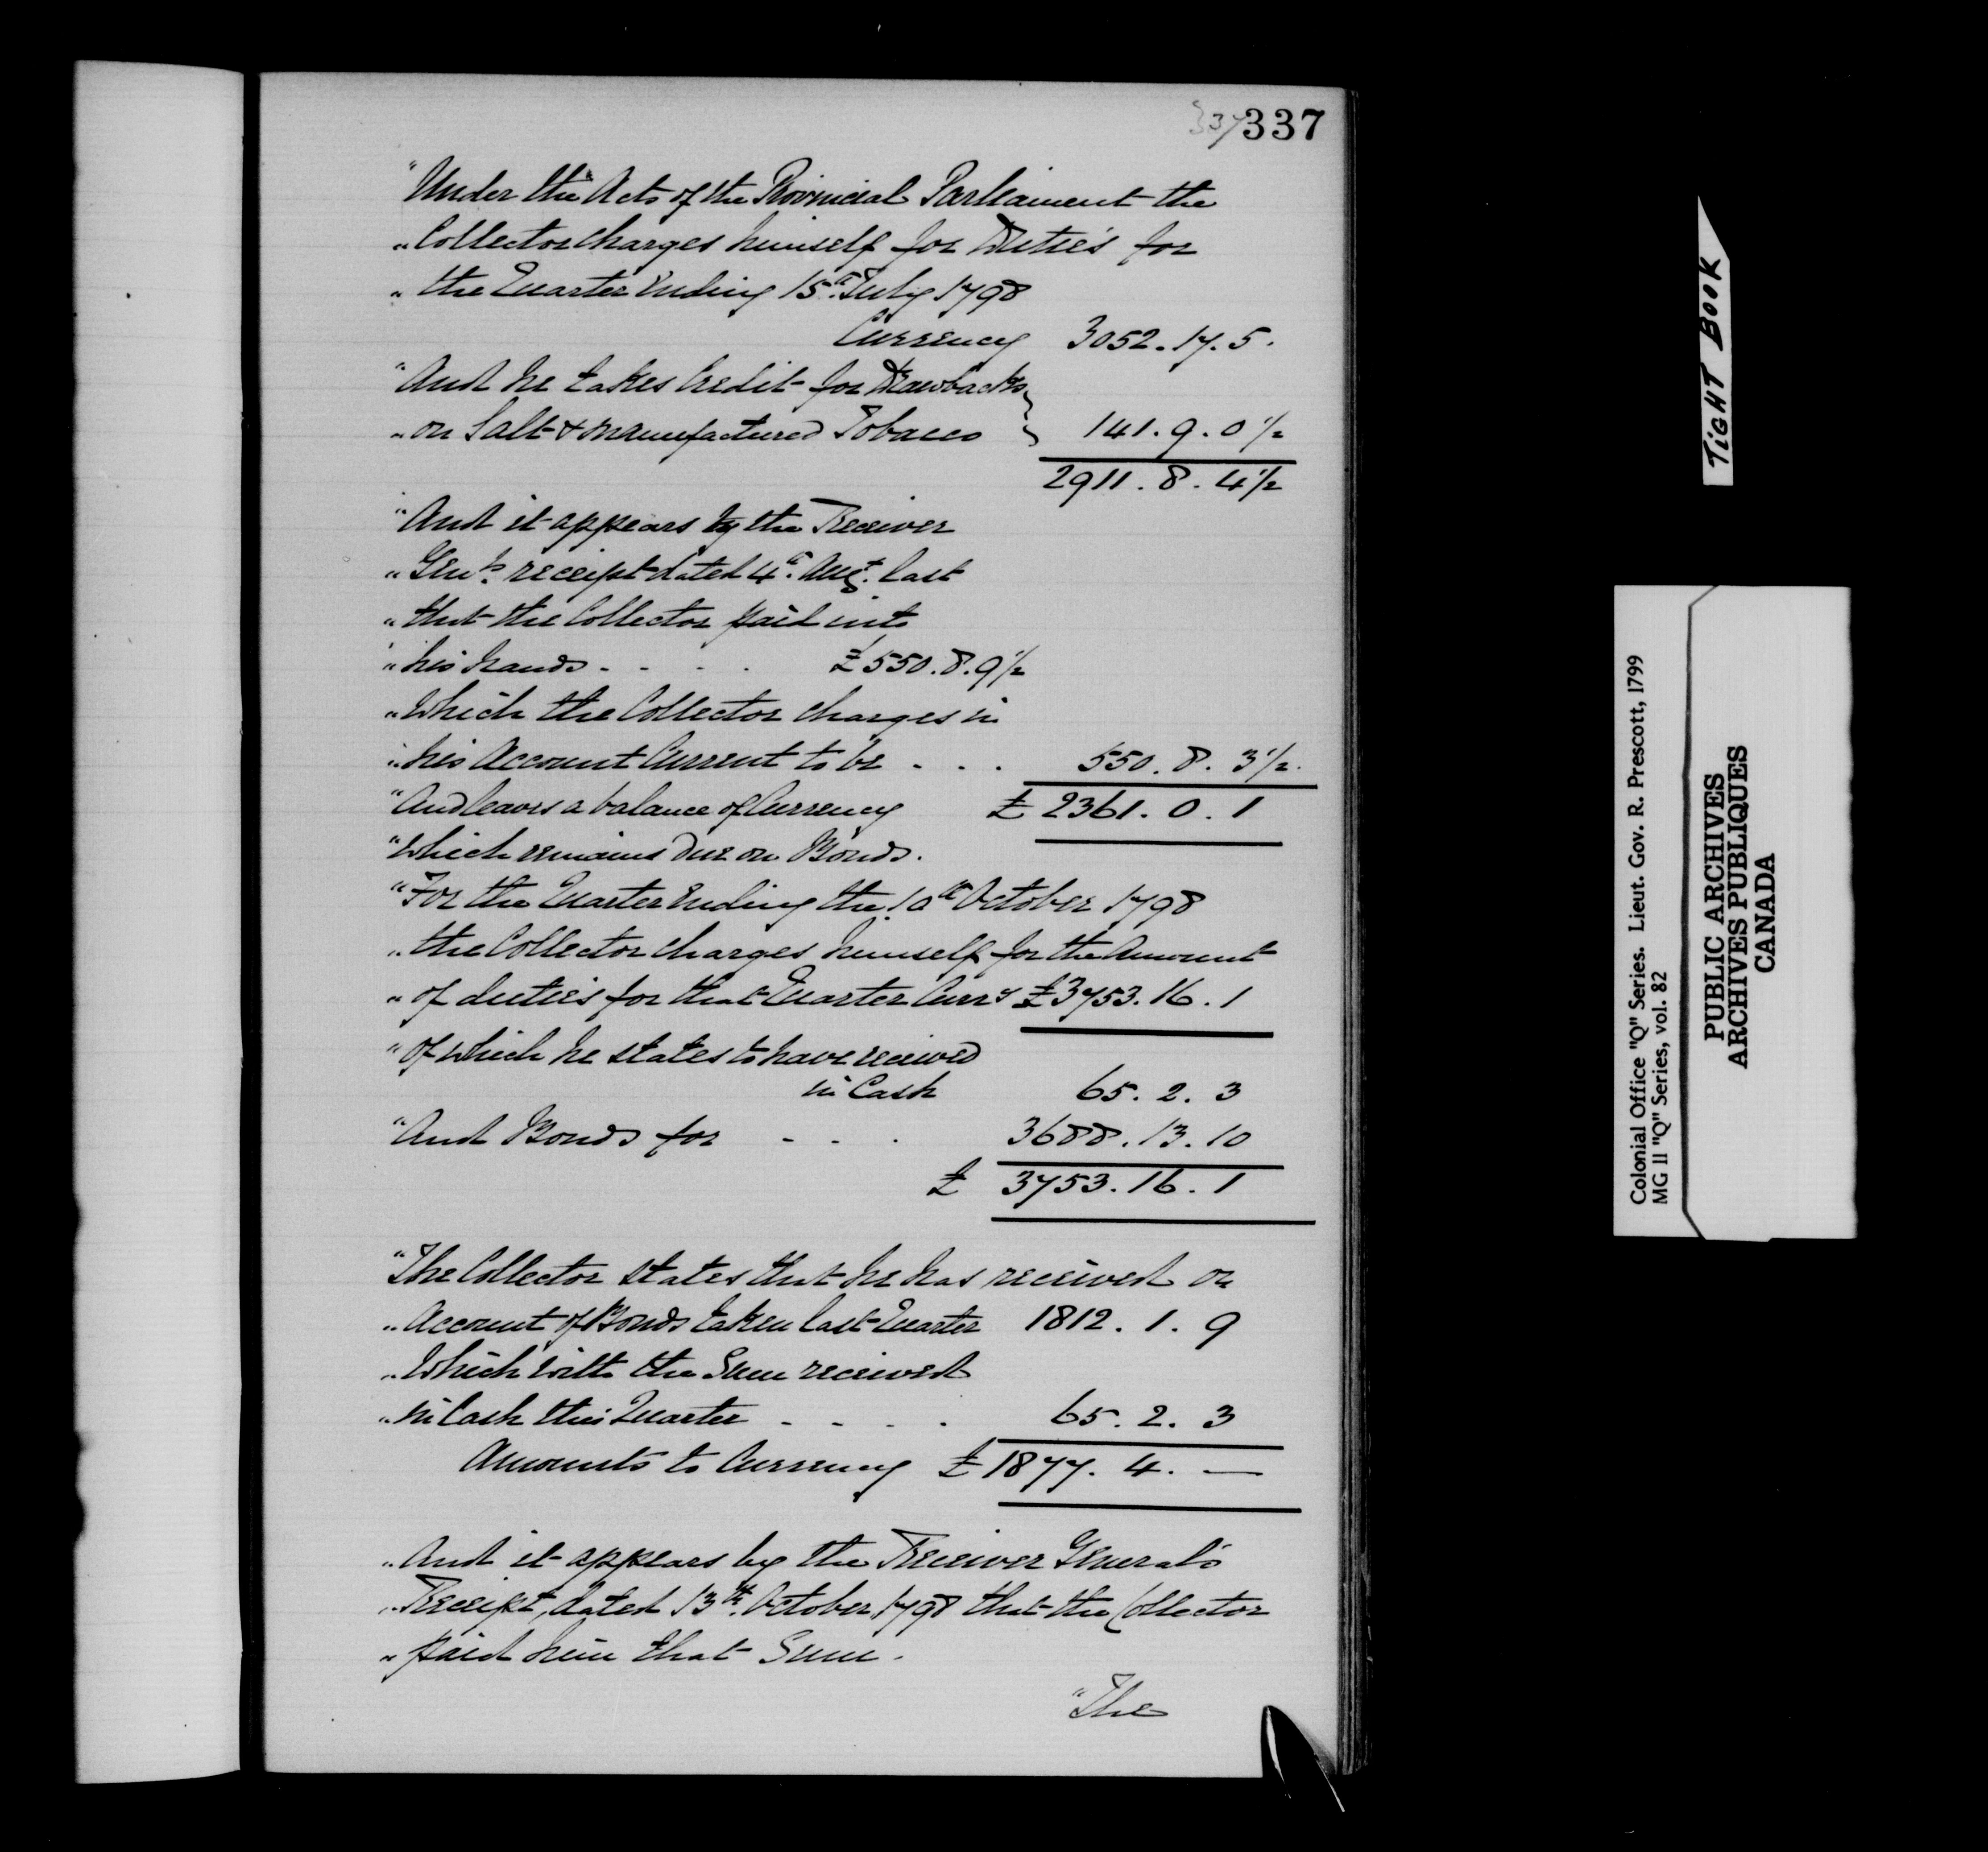 337 337
"Under the Acts of the Provincial Parliament the
" Collector charges himself for Duties for
" the Quarter Ending 15th. July 1798
Currency 3052.17.5.
"And he takes Credit for Drawbacks
" on Salt & manufactured Tobacco } 141.9.0½
2911.8.4½
"And it appears by the Receiver
" Genls. receipt dated 4th. Augt. last
" that the Collector paid into
" his hands - - - - £550.8.9½
" Which the Collector charges in
" his Account Current to be - - - 550.8.3½.
"And leaves a balance of Currency £2361.0.1
"Which remains due on Bonds.
"For the Quarter Ending the 10th October 1798
" the Collector charges himself for the Amount
" of duties for that Quarter Curry £3753.16.1
" Of which he states to have received
in Cash 65.2.3
"And Bonds for - - - 3688.13.10
£ 3753.16.1
"The Collector states that he has received on
" Account of Bonds taken last Quarter 1812.1.9
" Which with the Sum received
" in Cash this Quarter - - - - 65.2.3
Amounts to Currency £1877.4.—
" And it appears by the Receiver General's
" Receipt, dated 13th. October 1798 that the Collector
" paid him that Sum.
"The
TIGHT BOOK
Colonial Office "Q" Series. Lieut. Gov. R. Prescott, 1799
MG 11 "Q" Series, vol. 82
PUBLIC ARCHIVES
ARCHIVES PUBLIQUES
CANADA